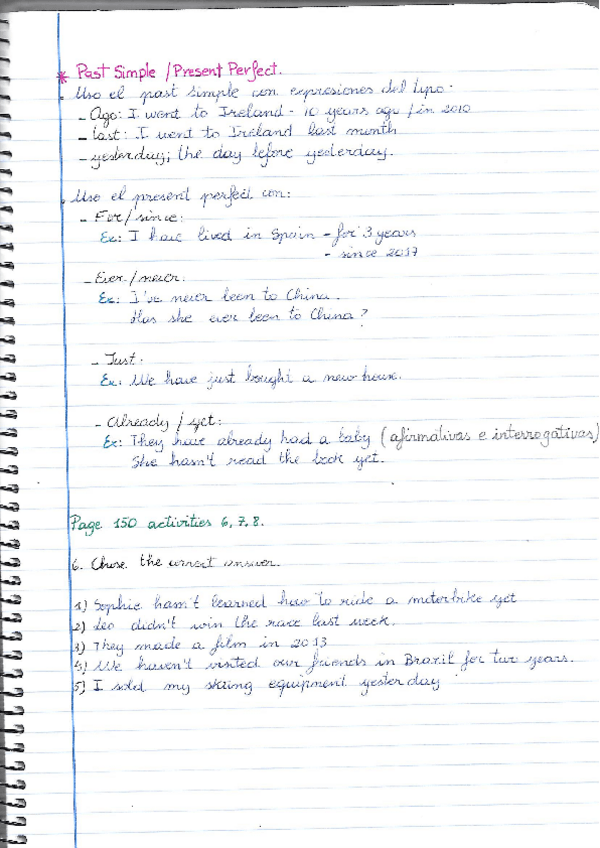 * Past Simple / Present Perfect.
. Uso el past simple con expresiones del tipo.
- Ago: I went to Ireland - 10 years ago / in 2010
- last: I went to Ireland last month
- yesterday; the day before yesterday.
. Uso el present perfect con:
- For / since:
Ex: I have lived in Spain - for 3 years
- since 2017
- Ever / never:
Ex: I've never been to China.
Has she ever been to China?
- Just:
Ex: We have just bought a new house.
- Already / yet:
Ex: They have already had a baby (afirmativas e interrogativas)
She hasn't read the book yet.
Page 150 activities 6, 7, 8.
6. Chose the correct answer.
1) Sophie hasn't learned how to ride a motorbike yet
2) Leo didn't win the race last week.
3) They made a film in 2013
4) We haven't visited our friends in Brazil for two years.
5) I sold my skiing equipment yesterday